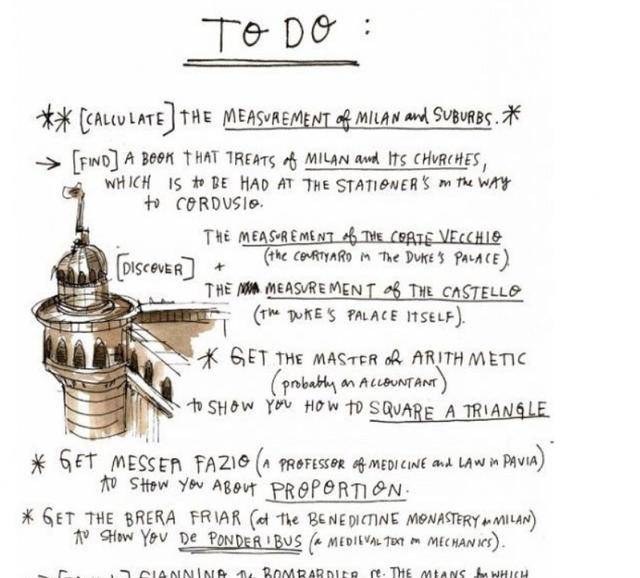 TO DO :
** [CALCULATE] THE MEASUREMENT of MILAN and SUBURBS. *
→ [FIND] A BOOK THAT TREATS of MILAN and ITS CHURCHES,
WHICH IS to BE HAD AT THE STATIONER'S on the WAY
to CORDUSIO.
THE MEASUREMENT of THE CORTE VECCHIO
(the COURTYARD in THE DUKE'S PALACE).
[DISCOVER] +
THE MEASUREMENT of THE CASTELLO
(the DUKE'S PALACE ITSELF).
* GET THE MASTER of ARITHMETIC
(probably an ACCOUNTANT)
to SHOW YOU HOW TO SQUARE A TRIANGLE
* GET MESSER FAZIO (A PROFESSOR of MEDICINE and LAW in PAVIA)
to SHOW YOU ABOUT PROPORTION.
* GET THE BRERA FRIAR (at the BENEDICTINE MONASTERY in MILAN)
to SHOW YOU De PONDERIBUS (a MEDIEVAL TEXT on MECHANICS).
GIANNINO the BOMBARDIER re. THE MEANS by WHICH